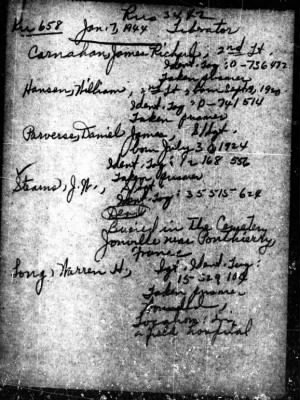 Ku 658 Jan. 7, 1944 Liberator
Carnahan, James Richard, 2nd Lt.
Ident. Tag: O-736472
Taken prisoner
Hansen, William, 2nd Lt., born Sept 9, 1920
Ident. Tag: O-741514
Taken prisoner
Parverse, Daniel James, S/Sgt.
born July 30 1924
Ident. Tag: 12 168 556
Taken prisoner
Stearns, J.W., S/Sgt
Ident. Tag: 35 515-624
Dead
Buried in the Cemetery
Jonville near Ponthierry,
France
Long, Warren H., Sgt, Ident. Tag:
15-329 104
Taken prisoner
a field hospital